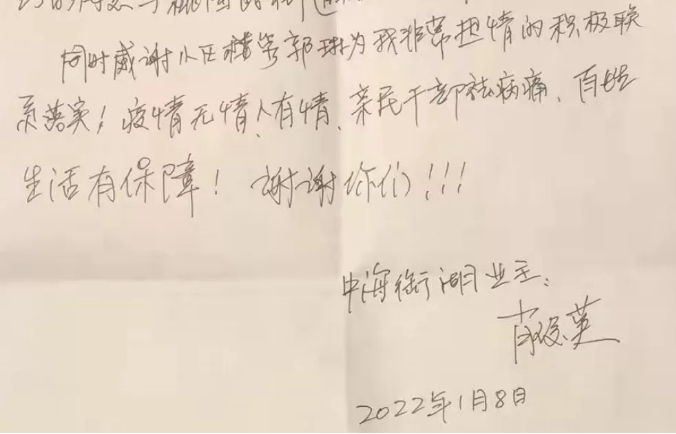 同时感谢小区楼管郭琳为我非常热情的积极联
系落实！疫情无情人有情、亲民干部祛病痛、百姓
生活有保障！谢谢你们!!!
中海街湖业主：
肖俊英
2022年1月8日